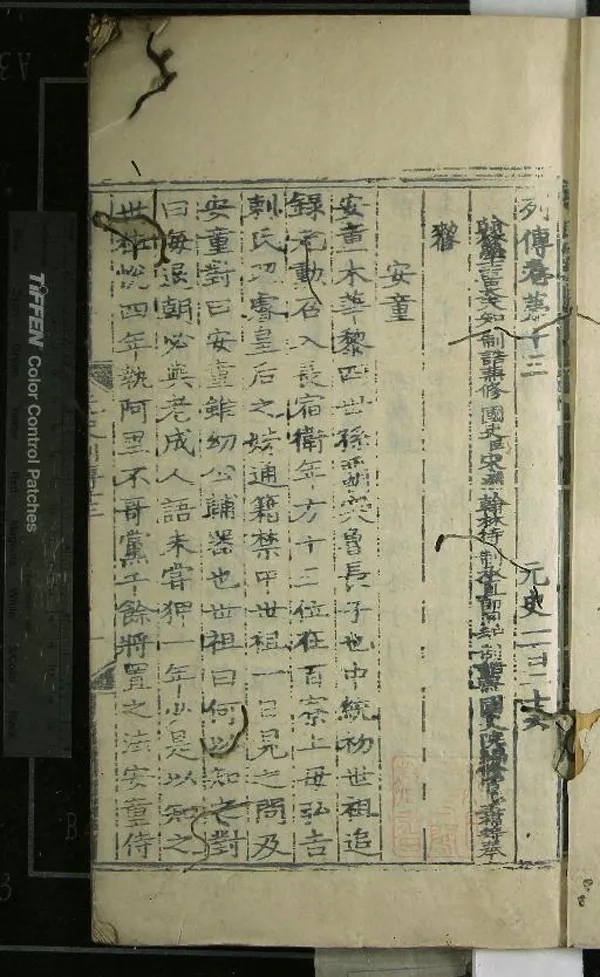 列傳卷第十三 元史一百二十六
翰林學士 知制誥兼修 國史臣宋濂 翰林待制承直郎同知制誥兼 國史院編修官 等奉
安童
安童木華黎四世孫霸突魯長子也中統初世祖追
錄元勳召入長宿衛年方十三位在百寮上母弘吉
剌氏昭睿皇后之姊通籍禁中世祖一日見之問及
安童對曰安童雖幼公輔器也世祖曰何以知之對
曰每退朝必與老成人語未嘗狎一年少是以知之
世祖悅四年執阿里不哥黨千餘將置之法安童侍
TIFFEN Color Control Patches